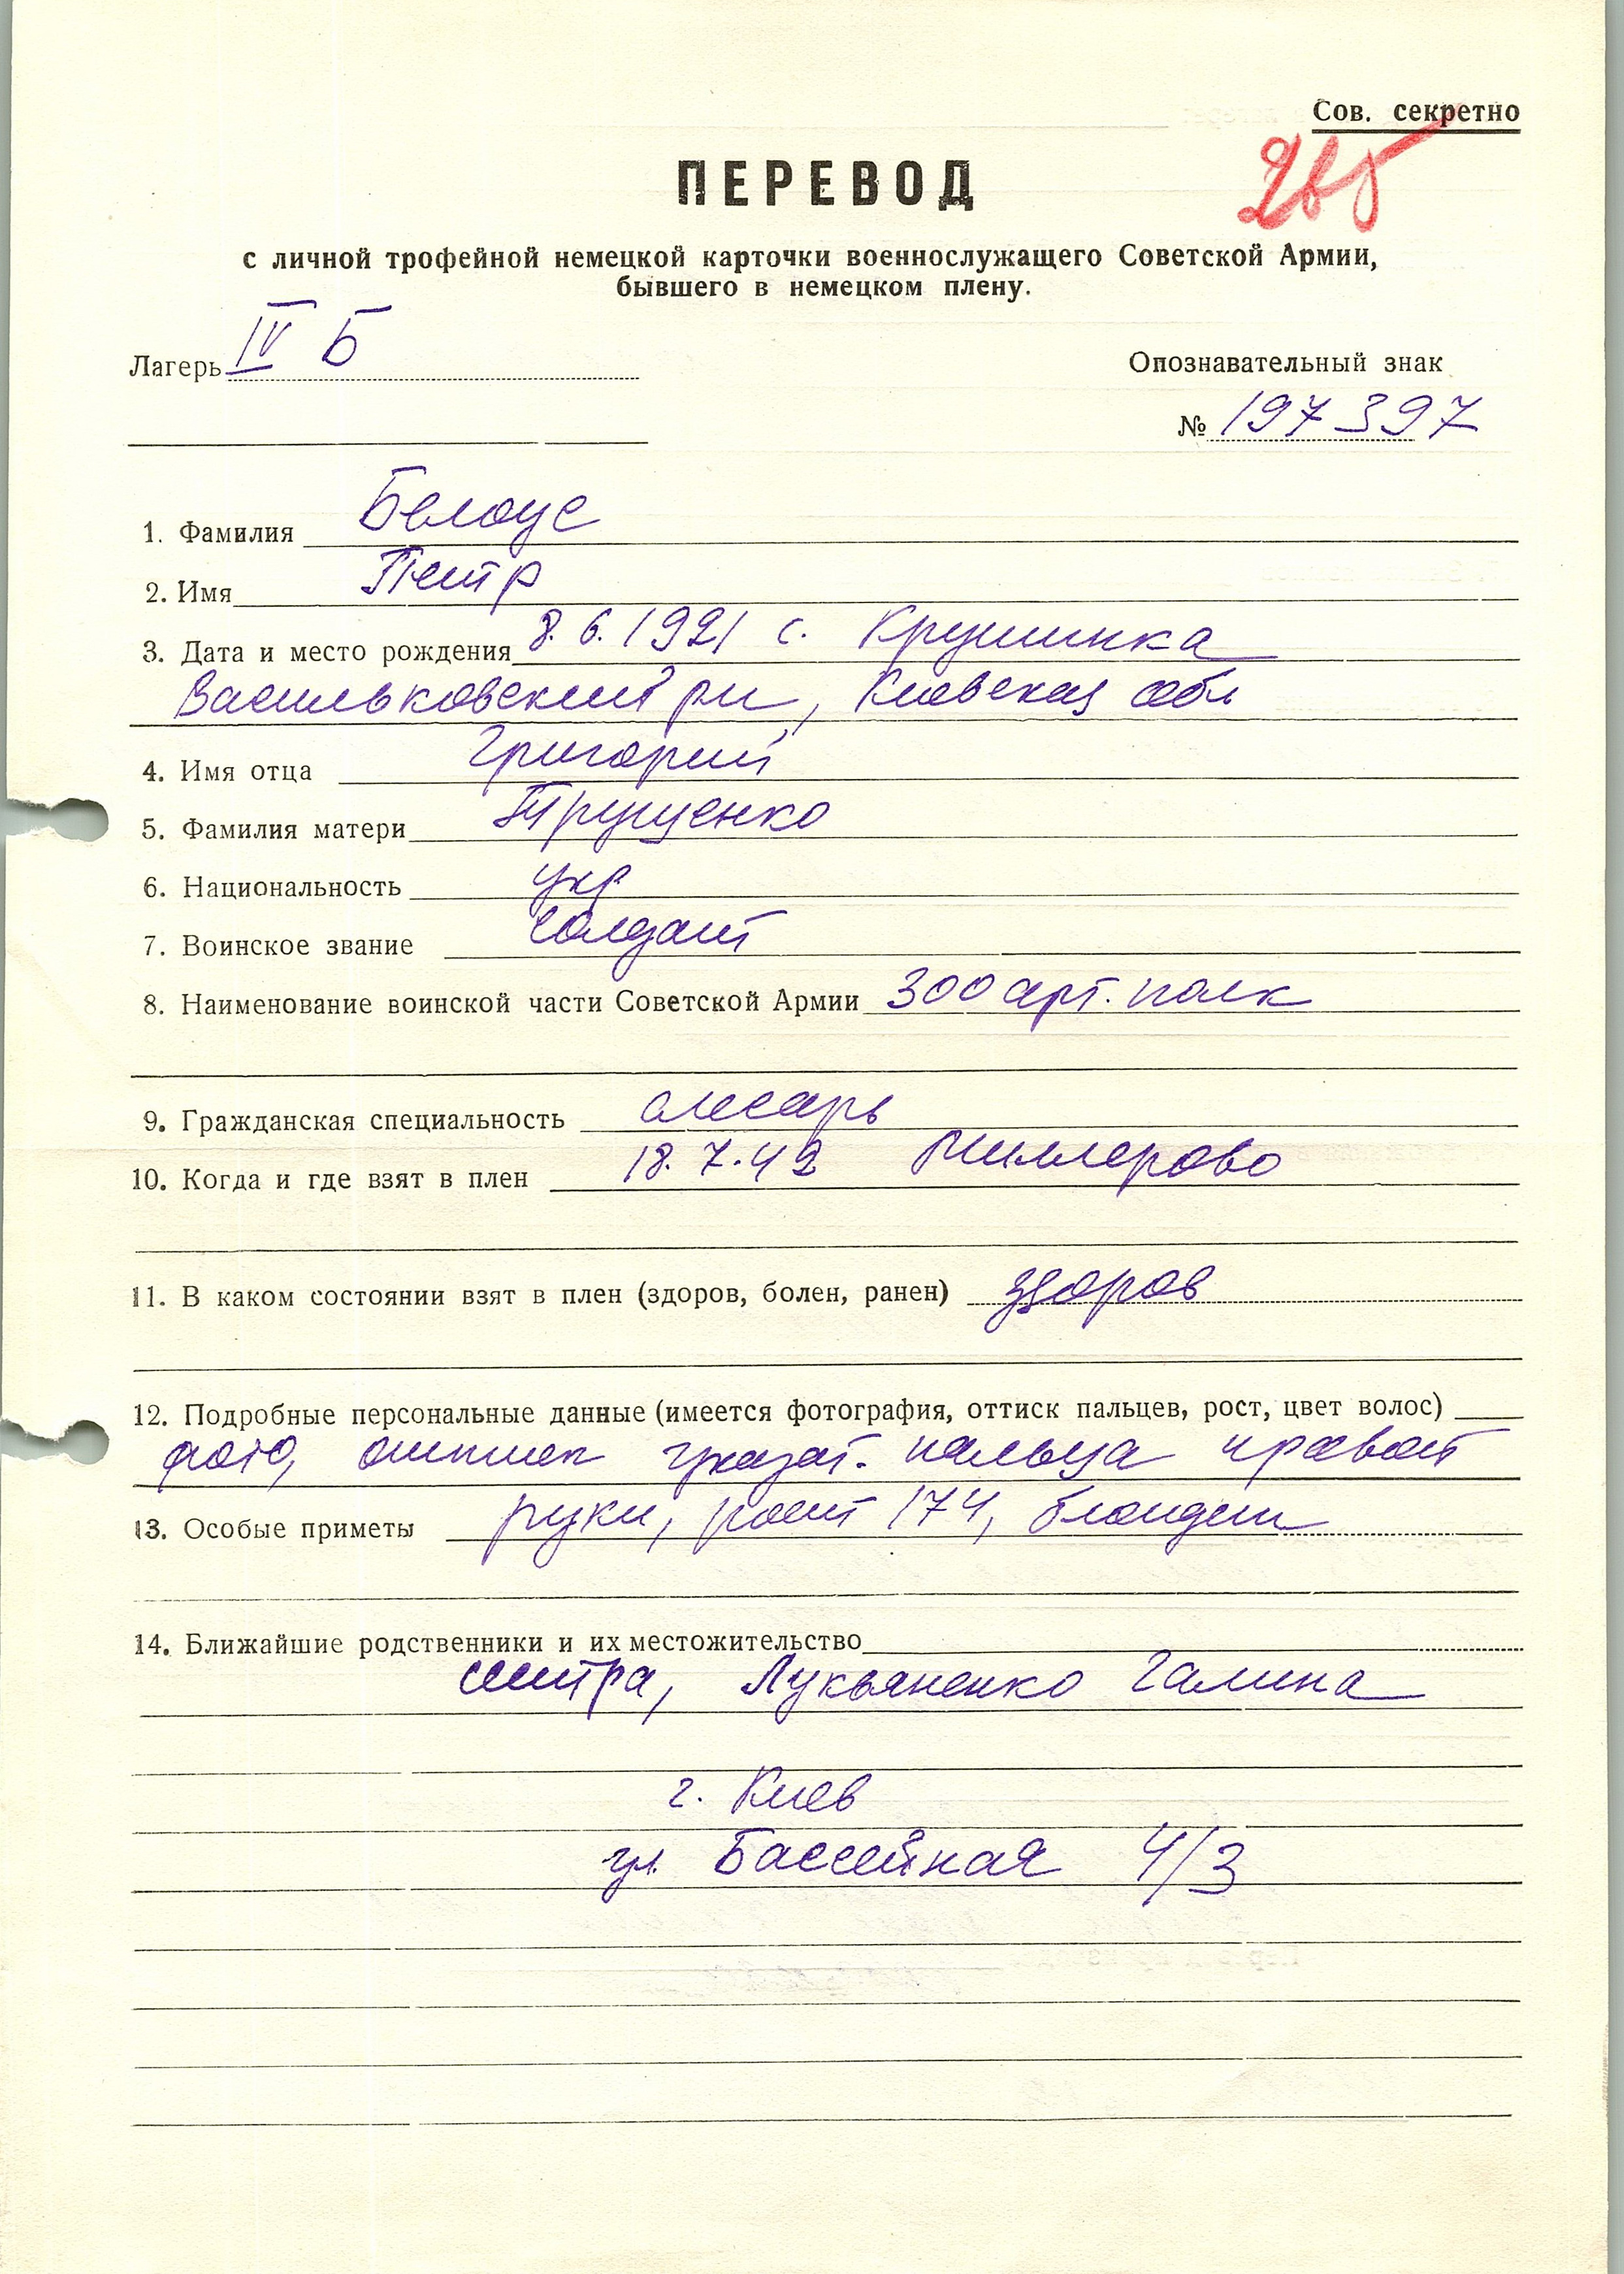 Сов. секретно
ПЕРЕВОД
с личной трофейной немецкой карточки военнослужащего Советской Армии,
бывшего в немецком плену.
Лагерь IV Б
Опознавательный знак
№ 197397
1. Фамилия Белоус
2. Имя Петр
3. Дата и место рождения 8.6.1921 с. Крушинка
Васильковский рн, Киевская обл
4. Имя отца Григорий
5. Фамилия матери Трущенко
6. Национальность укр
7. Воинское звание солдат
8. Наименование воинской части Советской Армии 300 арт. полк
9. Гражданская специальность слесарь
10. Когда и где взят в плен 18.7.42 Миллерово
11. В каком состоянии взят в плен (здоров, болен, ранен) здоров
12. Подробные персональные данные (имеется фотография, оттиск пальцев, рост, цвет волос)
фото, оттиск указат. пальца правой
13. Особые приметы руки, рост 174, блондин
14. Ближайшие родственники и их местожительство
сестра, Лукьяненко Галина
г. Киев
ул. Бассейная 4/3